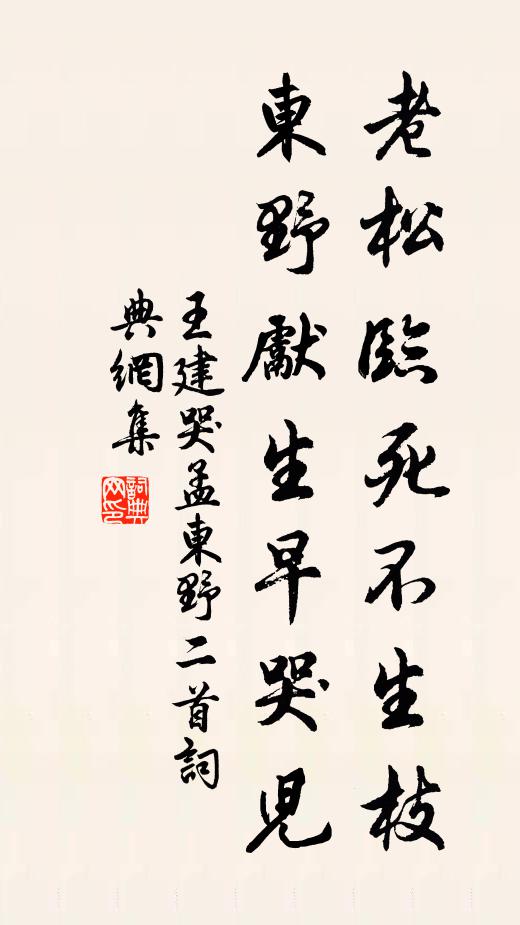 老松臨死不生枝
東野獻生早哭兒
王建哭孟東野二首詞
典網集
詞典
网印